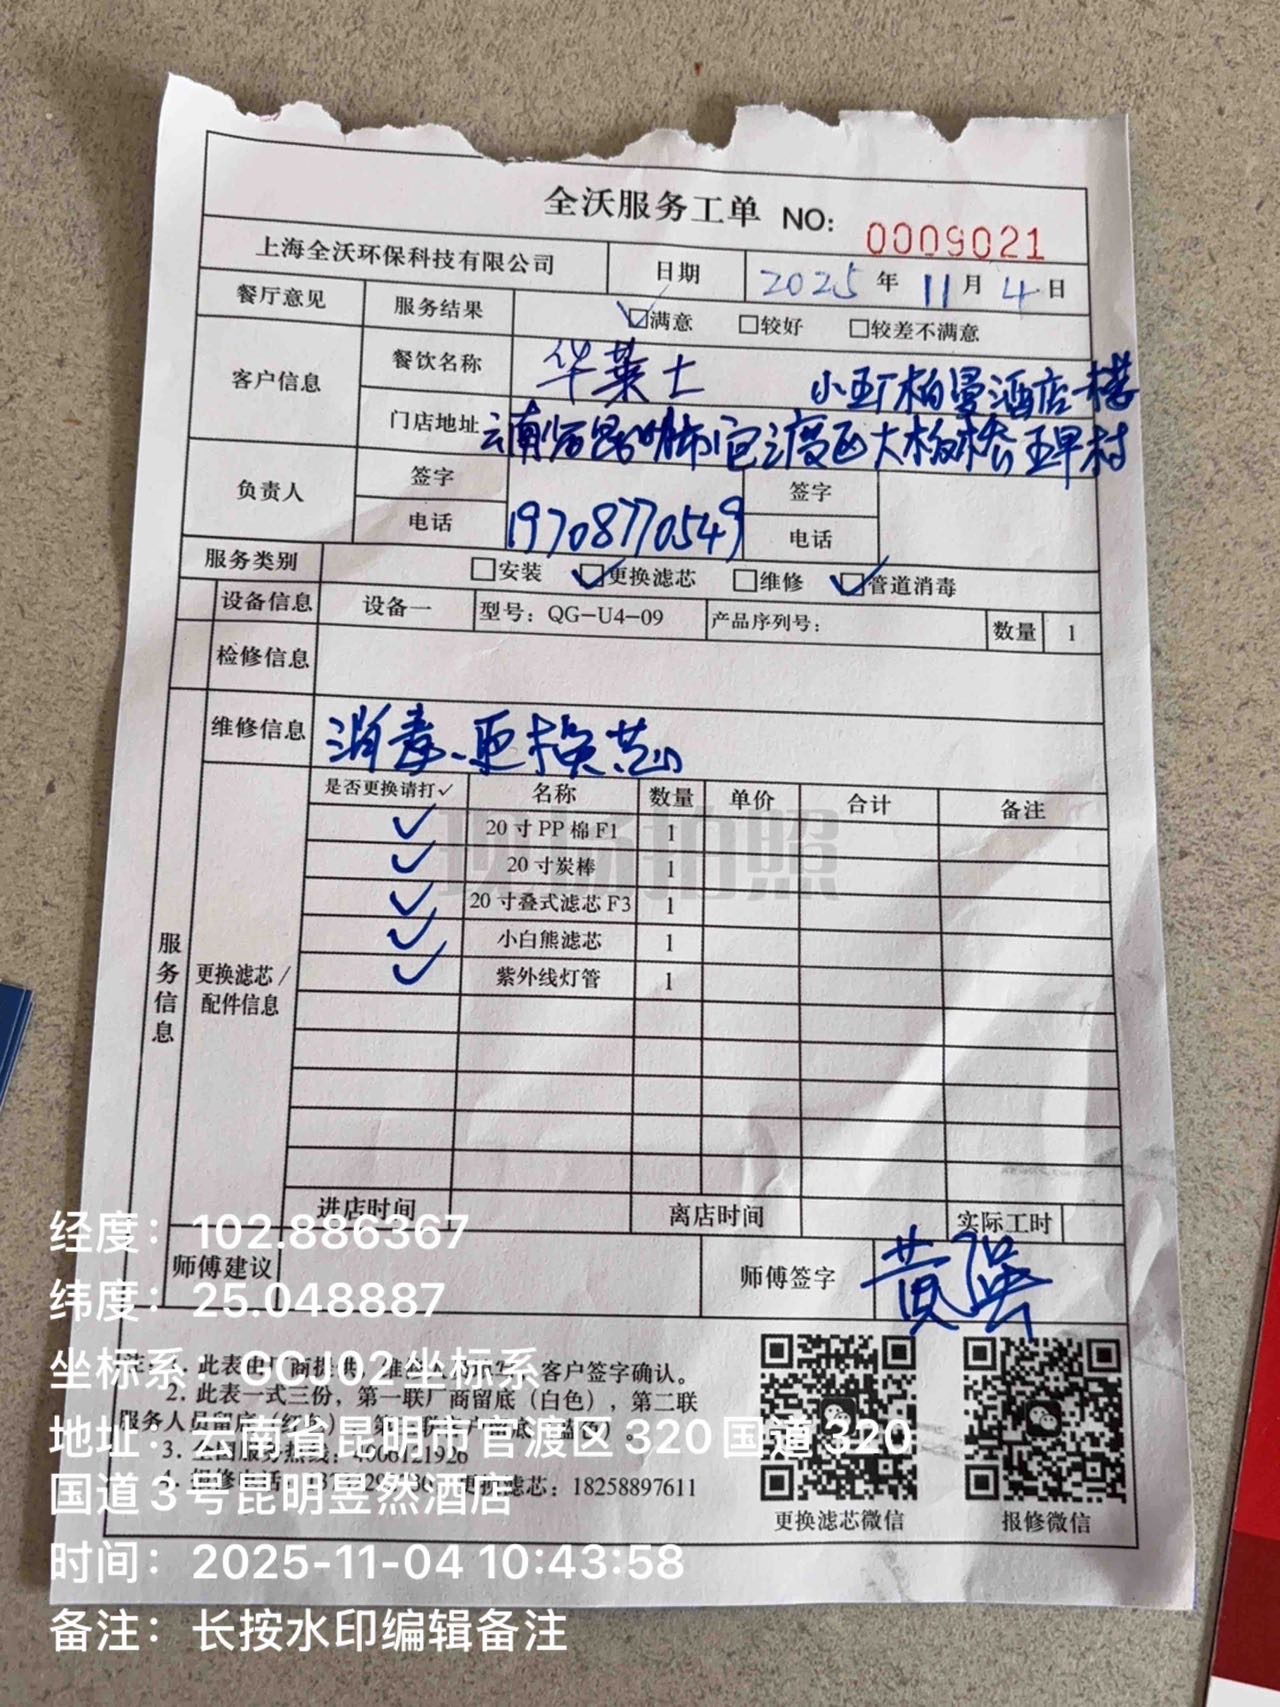 全沃服务工单 NO: 0009021
上海全沃环保科技有限公司 日期 2025年11月4日
餐厅意见 服务结果 ☑满意 □较好 □较差不满意
客户信息 餐饮名称 华莱士 酒店一楼
门店地址 云南省昆明市官渡区大板桥
负责人 签字 签字
电话 19708770549 电话
服务类别 □安装 ☑更换滤芯 □维修 ☑管道消毒
设备信息 设备一 型号：QG-U4-09 产品序列号： 数量 1
检修信息
维修信息 消毒、更换芯
服务信息
更换滤芯/配件信息
是否更换请打✓ 名称 数量 单价 合计 备注
✓ 20寸PP棉F1 1
✓ 20寸炭棒 1
✓ 20寸叠式滤芯F3 1
✓ 小白熊滤芯 1
✓ 紫外线灯管 1
现场拍照
进店时间 离店时间 实际工时
师傅建议 师傅签字 黄
客户签字确认。
2. 此表一式三份，第一联厂商留底（白色），第二联
服务人员留底
3. 全国服务热线：4006121926
更换滤芯：18258897611
更换滤芯微信 报修微信
经度：102.886367
纬度：25.048887
坐标系：GCJ02坐标系
地址：云南省昆明市官渡区320国道320
国道3号昆明昱然酒店
时间：2025-11-04 10:43:58
备注：长按水印编辑备注